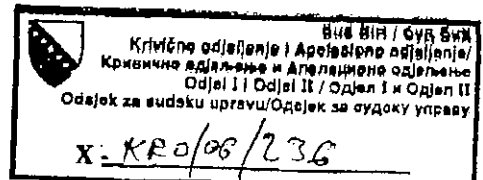 Sud BiH / Суд БиХ
Krivično odjeljenje i Apelaciono odjeljenje/
Кривично одјељење и Апелационо одјељење
Odjel I i Odjel II / Одјел I и Одјел II
Odsjek za sudsku upravu/Одсјек за судску управу
X: KRO/06/236